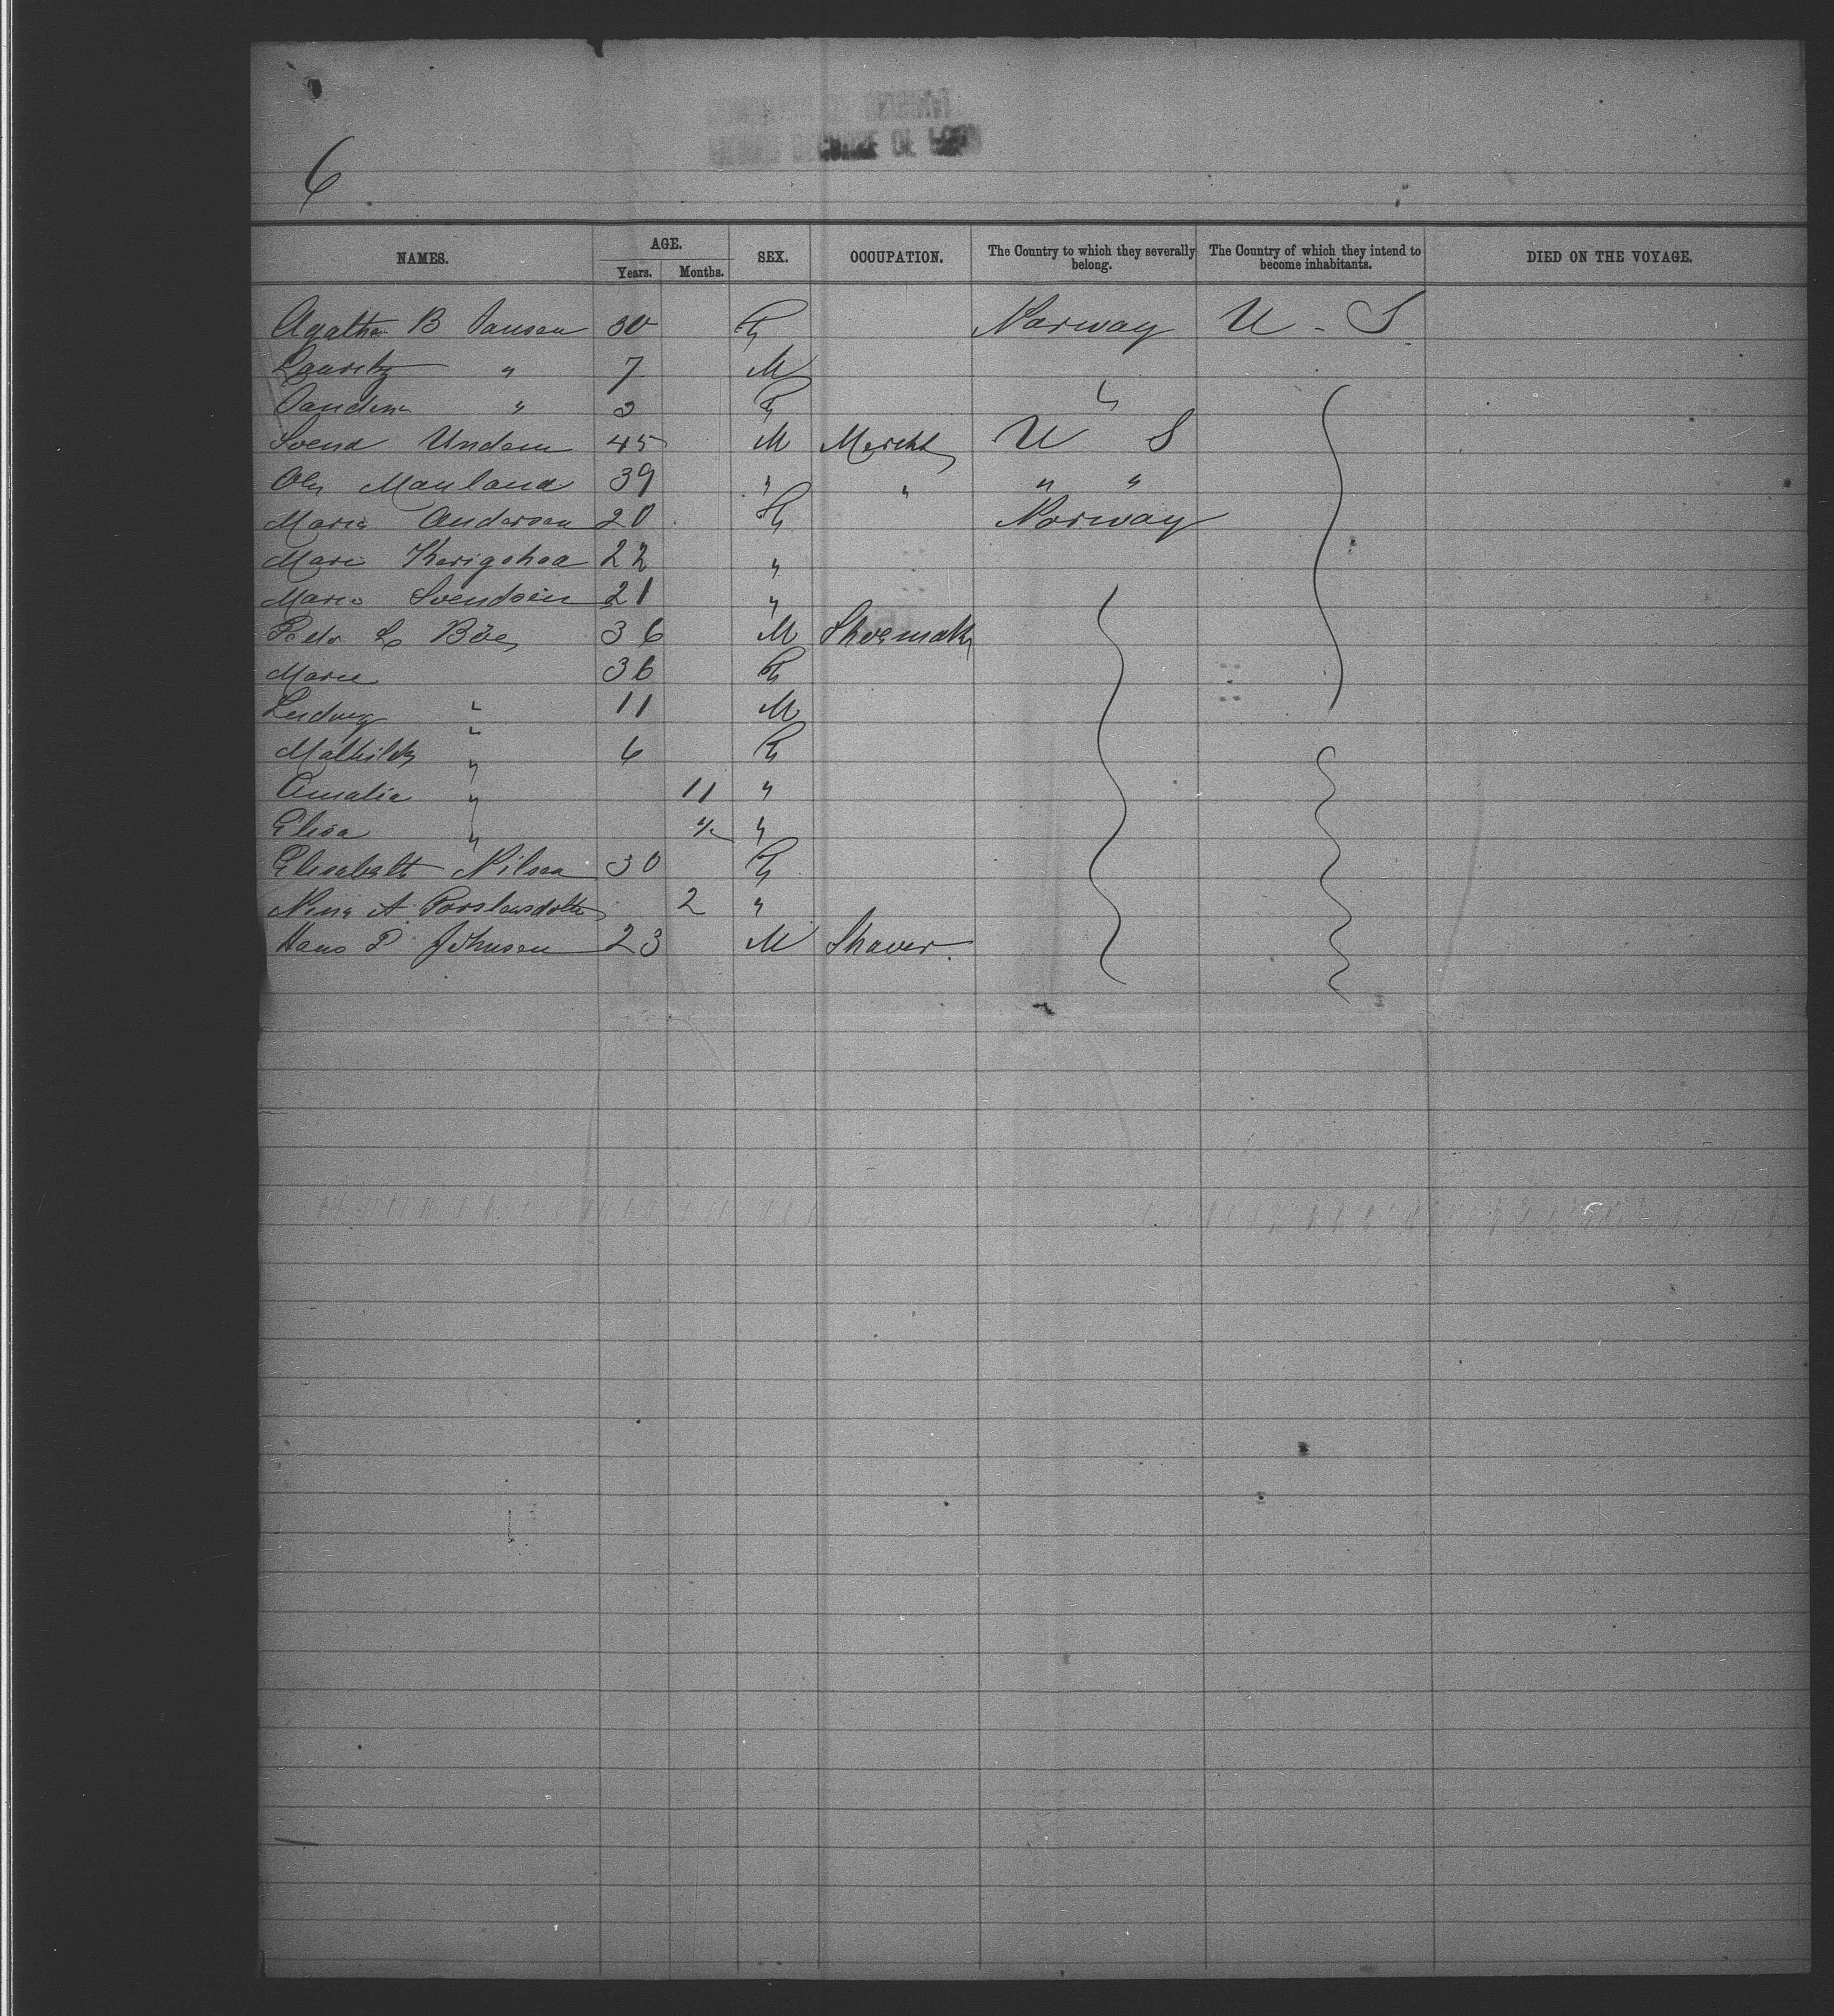 6
NAMES. AGE. Years. Months. SEX. OCCUPATION. The Country to which they severally belong. The Country of which they intend to become inhabitants. DIED ON THE VOYAGE.
Agathe B Jansen 30 F Norway U - S
Lauritz " 7 M "
Jandina " 3 F
Svend Undem 45 M Mercht U S
Ole Mauland 39 " " " "
Maria Andersen 20 F Norway
Mari 22 "
Maria Svendsen 21 "
Peder L Böe 36 M Shoemak
Marie 36 F
Ludwig " 11 M
Mathilde " 6 F
Amalia " 11 "
Elisa " "
Elisabeth Nilsen 30 F
A Torstensdotte 2 "
Hans P Johnsen 23 M Shaver.